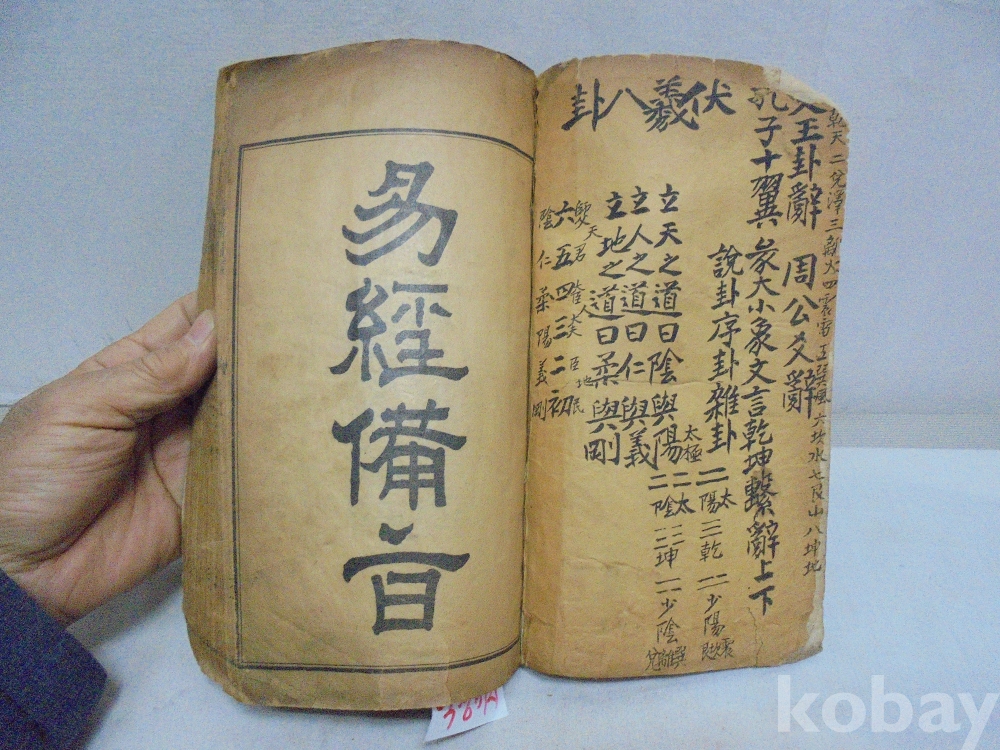 乾天二兌澤三離火四震雷五巽風六坎水七艮山八坤地
文王卦辭 周公爻辭
孔子十翼 彖大小象文言乾坤繫辭上下
說卦序卦雜卦
伏羲八卦
立天之道曰陰與陽
立人之道曰仁與義
立地之道曰柔與剛
太極
二太陽三乾二少陽
二太陰三坤二少陰
天君 人 臣 地民
六五四三二初
陰仁柔陽義剛
易經備旨
kobay